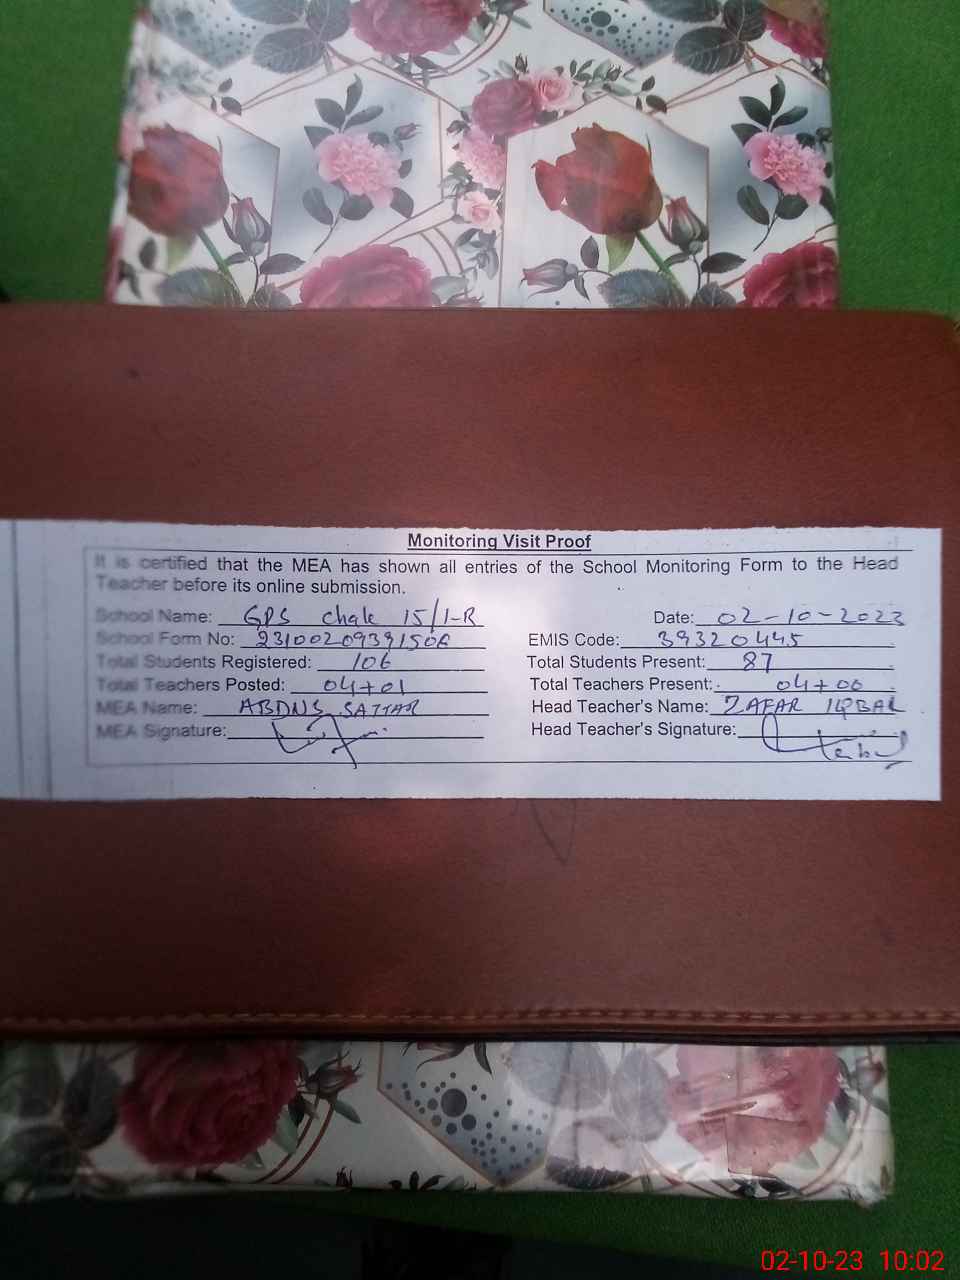 Monitoring Visit Proof
It is certified that the MEA has shown all entries of the School Monitoring Form to the Head
Teacher before its online submission.
School Name: GPS Chak 15/1-R Date: 02-10-2023
School Form No: EMIS Code: 39320445
Total Students Registered: 106 Total Students Present: 87
Total Teachers Posted: 04+01 Total Teachers Present: 04+00
MEA Name: SATTAR Head Teacher's Name: ZAFAR IQBAL
MEA Signature: Head Teacher's Signature:
02-10-23 10:02